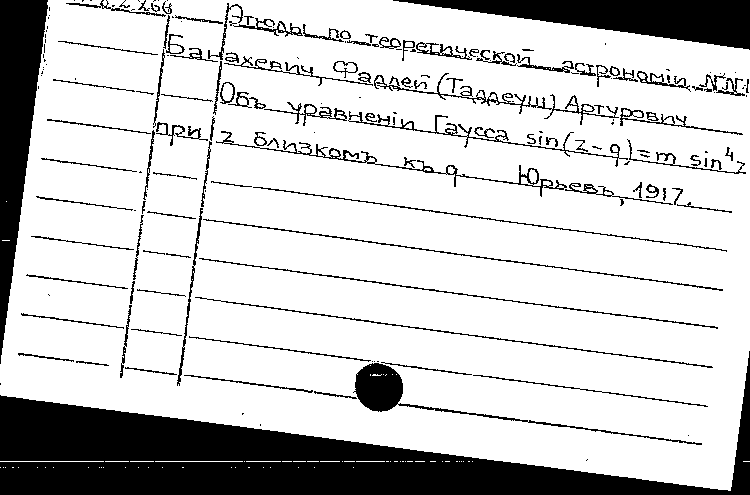 Этюды по теоретической астрономіи
Банахевич, Фаддей (Таддеуш) Артурович
Объ уравненіи Гаусса sin(z-q)=m sin⁴z
при z близкомъ къ q. Юрьевъ, 1917.